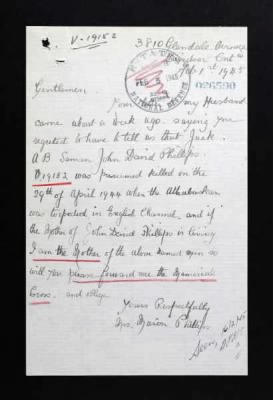 V-19152
3810 Glendale Avenue
Windsor Ont
Feb 1st 1945
FEB 1945
NATIONAL DEFENCE
Gentlemen
Your my Husband
came about a week ago. saying you
regretted to have to tell us that Jack.
A B Seman John David Phillips.
V19152 was presumed killed on the
29th of April 1944 when the Athabaskan
was torpedoed in English Channel, and if
the Mother of John David Phillips is living
I am the Mother of the above named man so
will you please forward me the Memorial
Cross. and oblige
Yours Respectfully
Mrs. Phillips